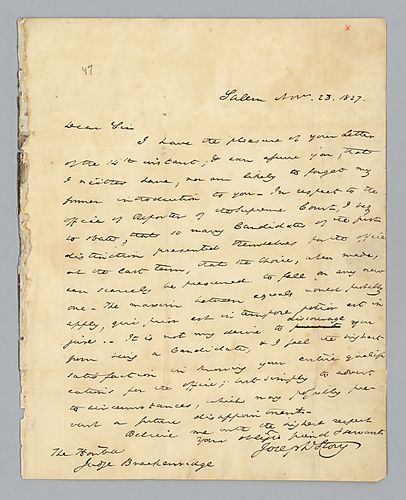 47
x
Salem Nov. 23. 1827.
Dear Sir
I have the pleasure of your Letter
of the 14th instant; & can assure you, that
I neither have, nor am likely to forget my
former introduction to you – In respect to the
office of Reporter of the Supreme Court, I beg
to state, that so many Candidates of the first
distinction presented themselves for the office
at the last term, that the choice, when made,
can scarcely be presumed to fall on any new
one – The maxim between equals would probably
apply, qui prior est in tempore, potior est in
jure. – It is not my desire to discourage you
from being a Candidate, & I feel the highest
satisfaction in knowing your entire qualifi
cations for the office; but simply to advert
to circumstances, which may possibly pre-
vent a future disappointment.
Believe me with the highest respect
your obliged friend & servant
Joseph Story
The Honble
Judge Brackenridge